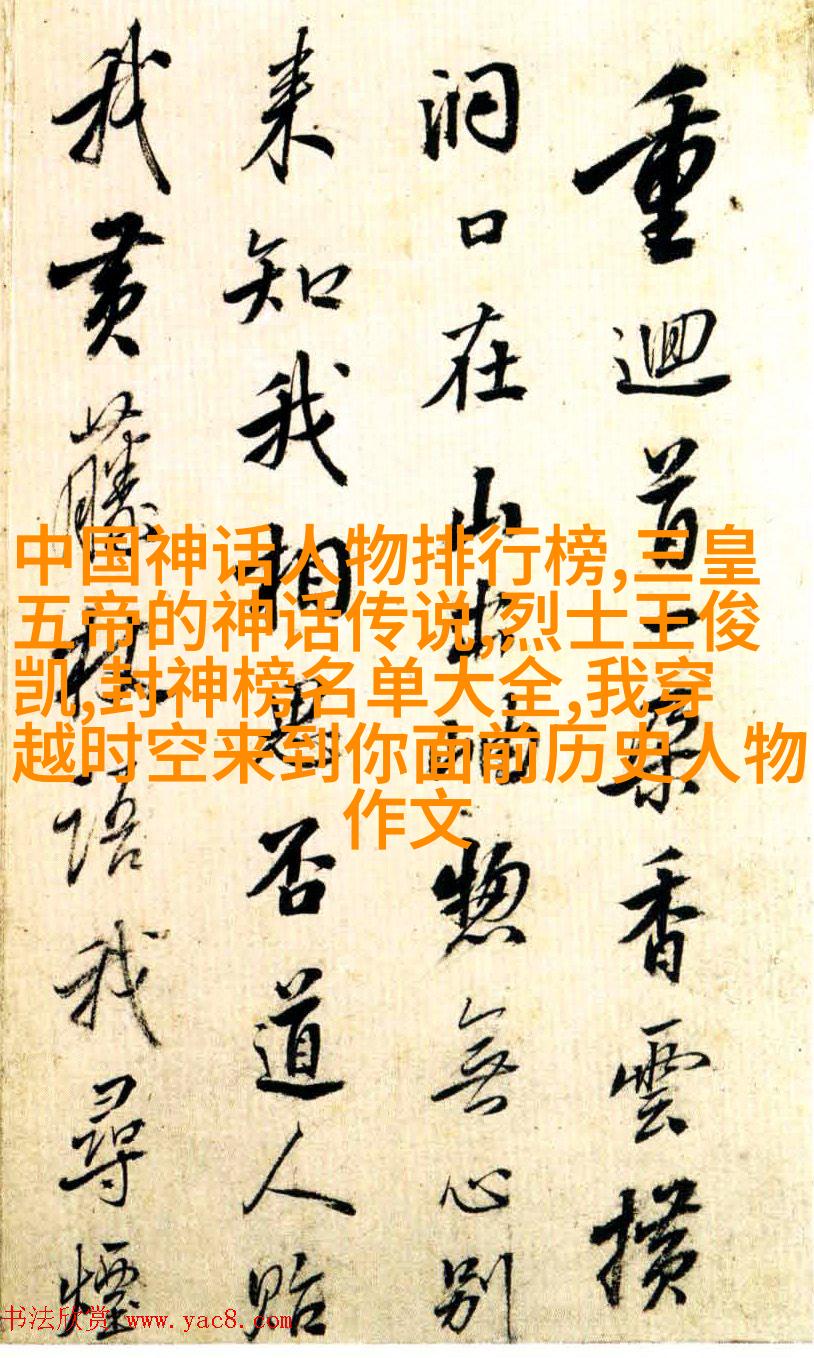 重迴首一朵香雲横
洞口在山惣無心別
来知我相思否道人貽
我黄藤杖語我尋煙
中国神话人物排行榜,三皇
五帝的神话传说,烈士王俊
凯,封神榜名单大全,我穿
越时空来到你面前历史人物
作文
书法欣赏 www.yac8.com